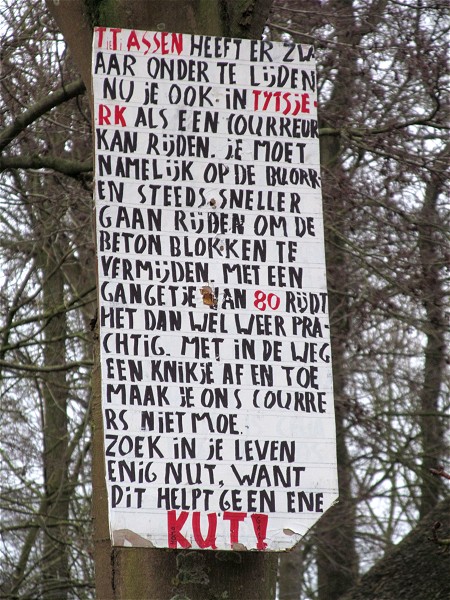 TJITJASSEN HEEFT ER ZW
AAR ONDER TE LIJDEN
NU JE OOK IN TYTSJE-
RK ALS EEN COURREUR
KAN RIJDEN. JE MOET
NAMELIJK OP DE BLOKK
EN STEEDS SNELLER
GAAN RIJDEN OM DE
BETON BLOKKEN TE
VERMIJDEN. MET EEN
GANGETJE VAN 80 RIJDT
HET DAN WEL WEER PRA-
CHTIG. MET IN DE WEG
EEN KNIKJE AF EN TOE
MAAK JE ONS COURRE
RS NIET MOE.
ZOEK IN JE LEVEN
ENIG NUT, WANT
DIT HELPT GEEN ENE
KUT!